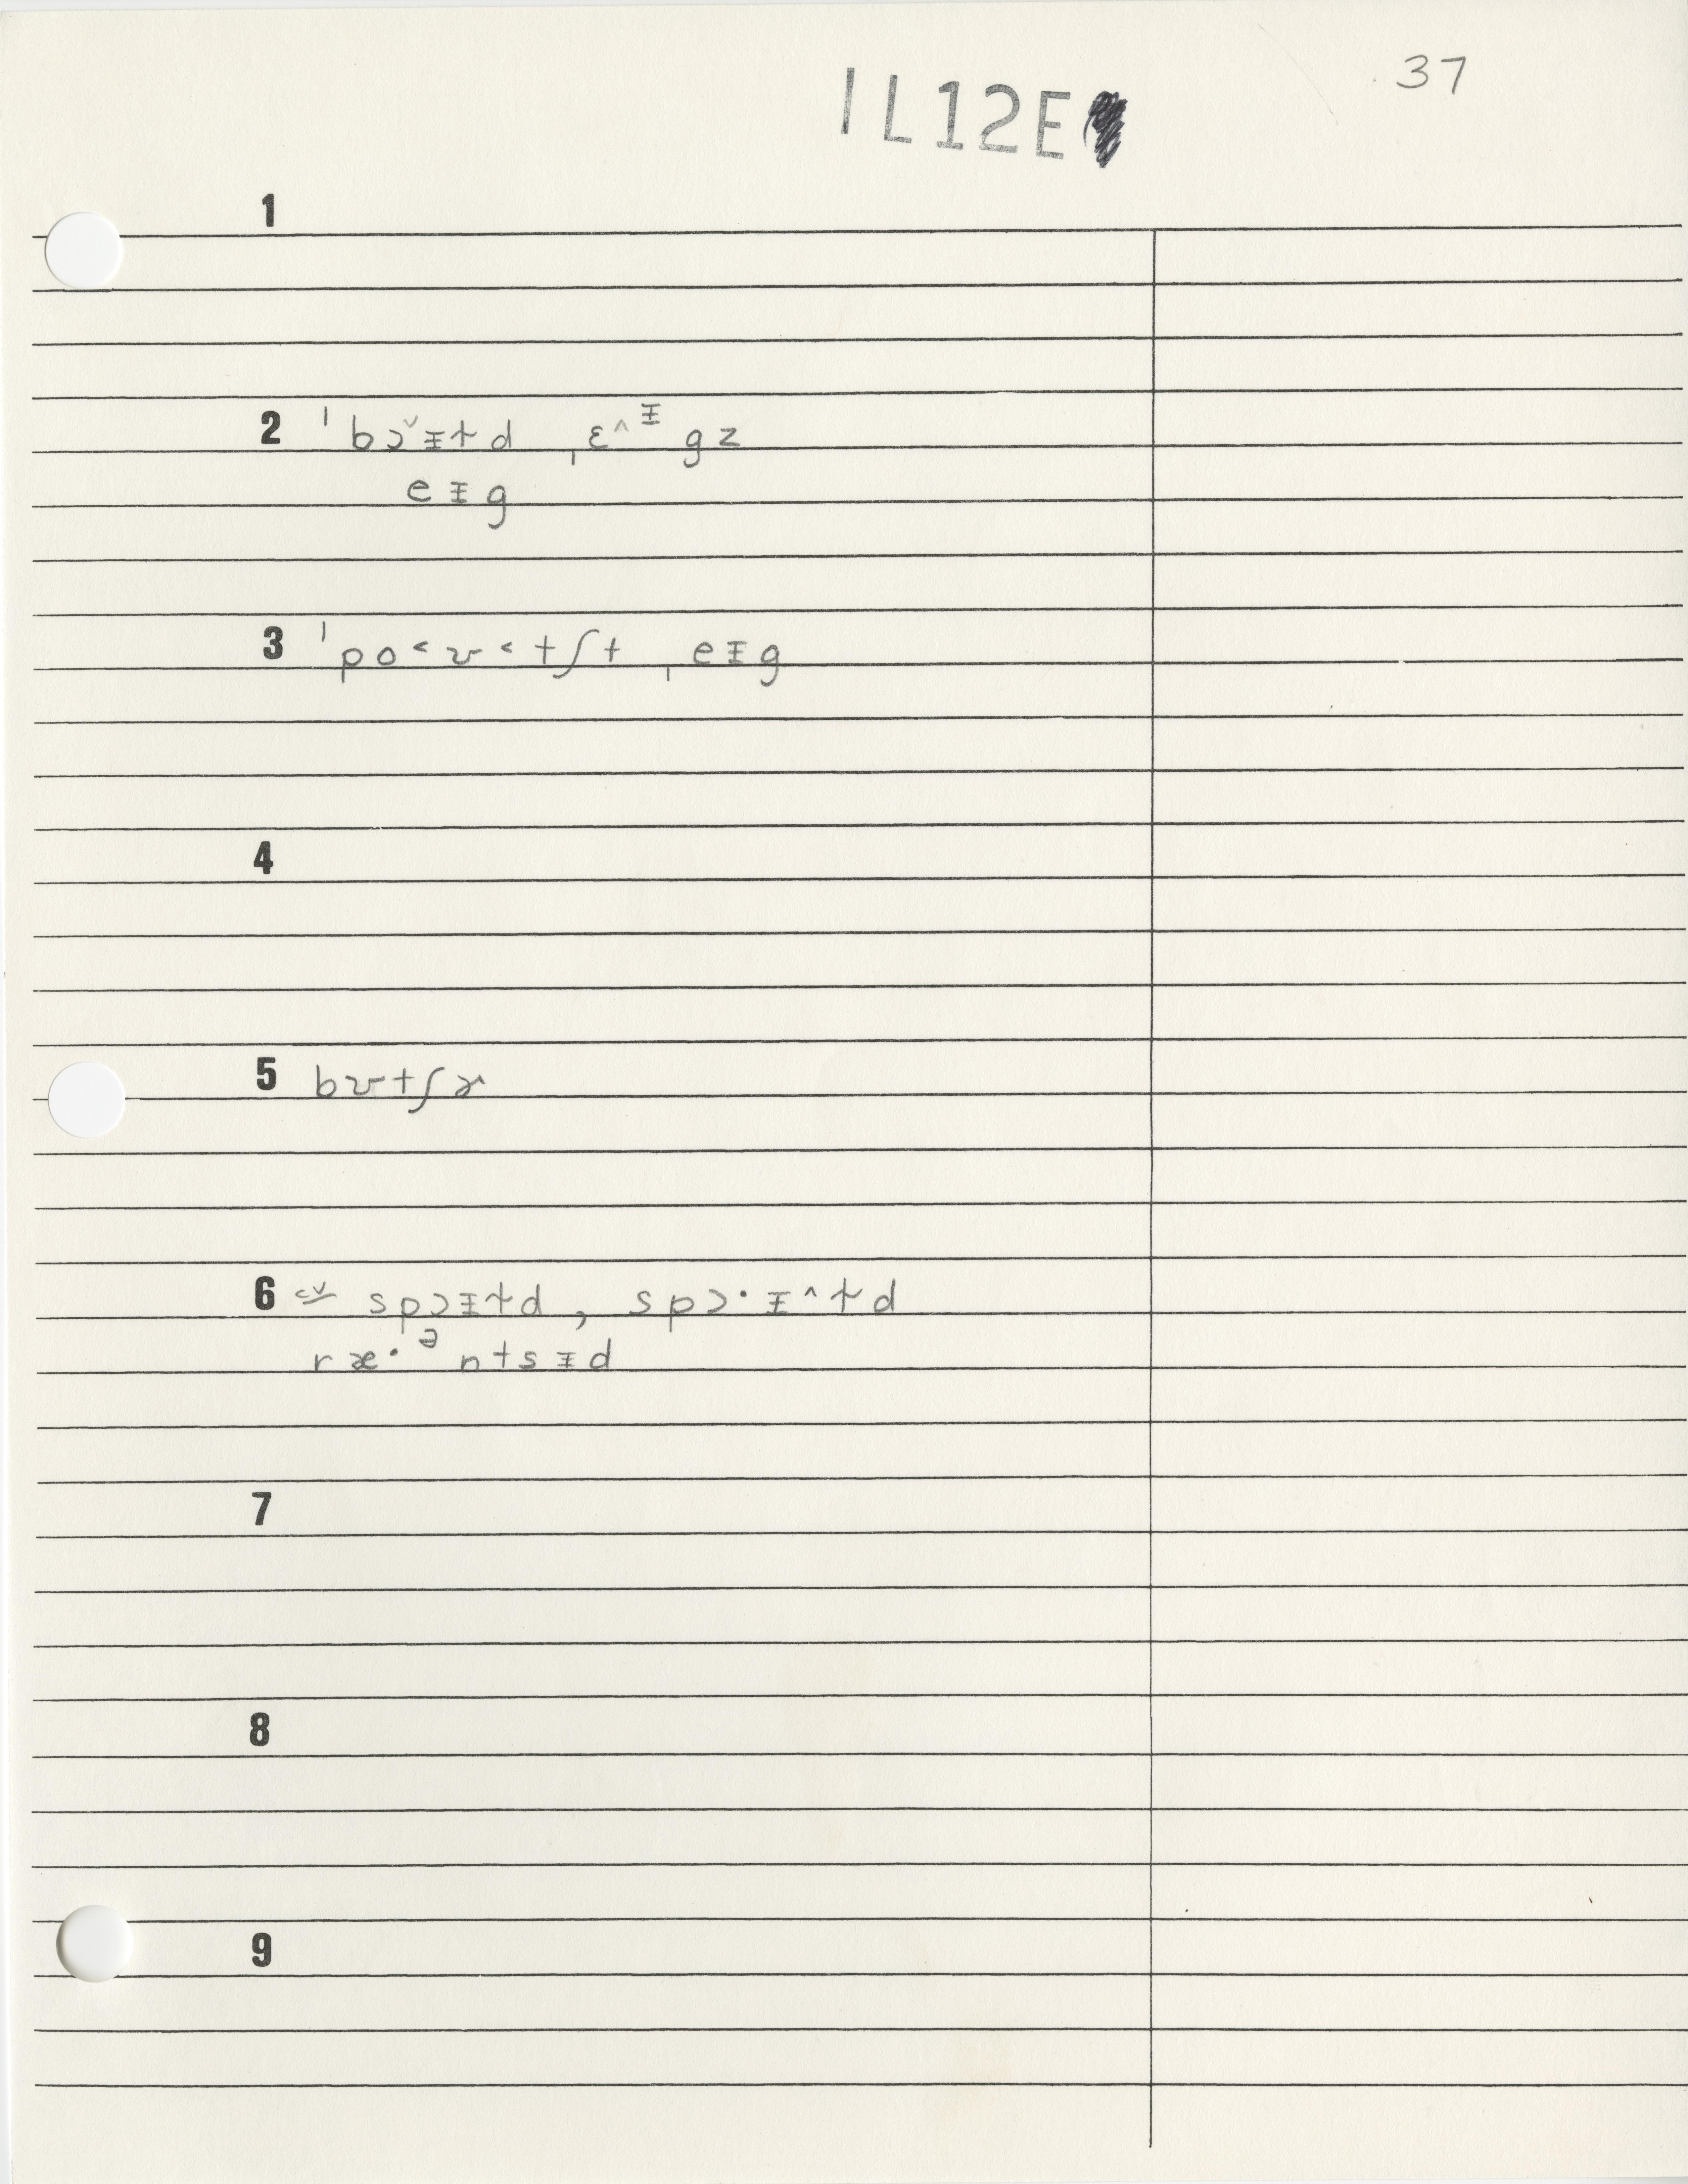 37
1L12E
1
2 ˈbɔ˅ᵻɫd ˌɛ^ᵻgz
eᵻg
3 ˈpo˂ʊ˂tʃt ˌeᵻg
4
5 bʊtʃɚ
6 spɔᵻɫd, spɔ·ᵻ^ɫd
ræ·ᵊntsᵻd
7
8
9